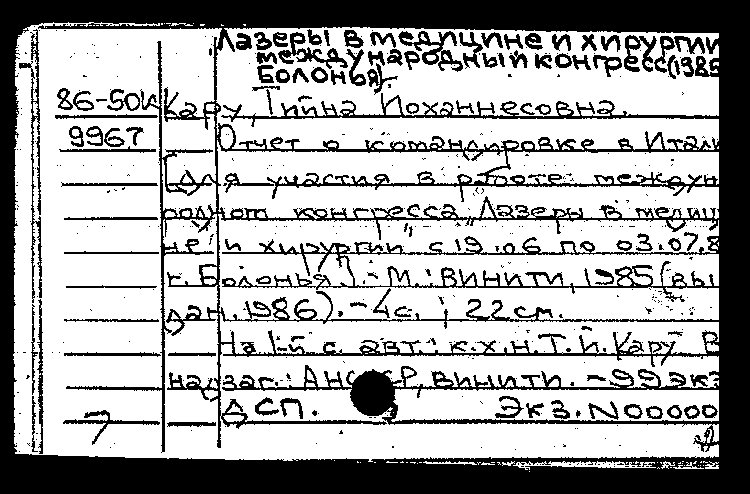 "Лазеры в медицине и хирургии
международный конгресс(1985
Болонья).
86-50к Кару, Тийна Йоханнесовна.
9967 Отчет о командировке в Итали
[для участия в работе междун
родного конгресса „Лазеры в медиц
не и хирургии" с 19.06 по 03.07.8
г. Болонья].-М.:ВИНИТИ, 1985(вы
дан.1986).-4с. ; 22см.
На 1-й с. авт.: к.х.н. Т.Й. Кару В
надзаг.: АН СССР, ВИНИТИ. -99экз
ДСП. Экз.N00000